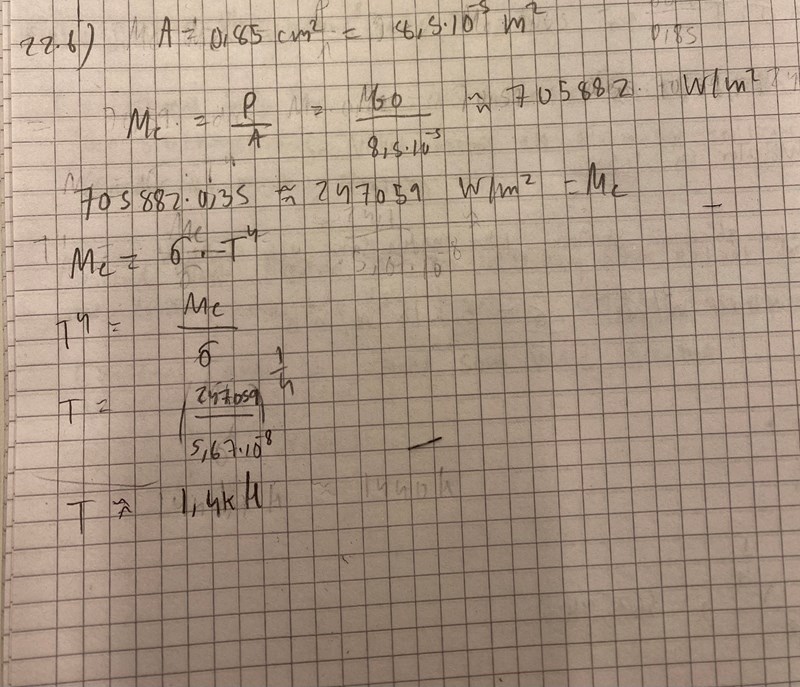 22.6) A = 0,85 cm² = 8,5·10⁻⁵ m²
Mc = P/A = 60/8,5·10⁻⁵ ≈ 705882 W/m²
705882·0,35 ≈ 247059 W/m² = Mc
Mc = σ·T⁴
T⁴ = Mc/σ
T = (247059/5,67·10⁻⁸)^1/4
T ≈ 1,4k